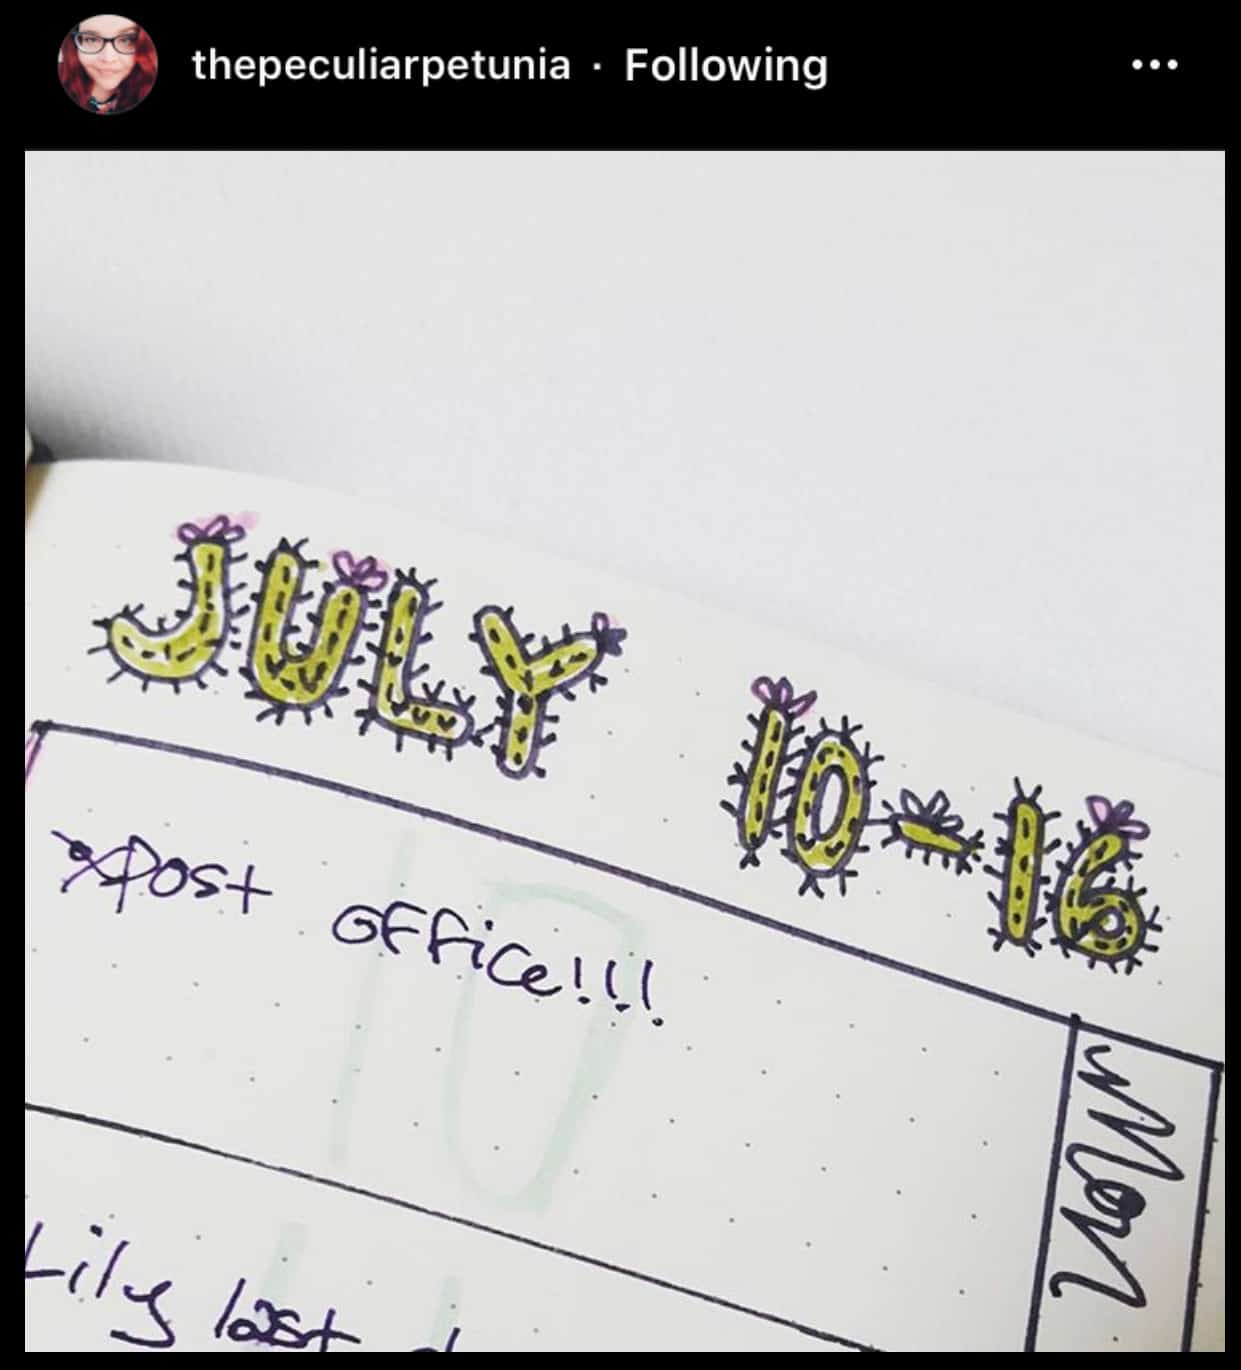 thepeculiarpetunia · Following
JULY 10-16
xPost office!!!
10
Mon
Lily last